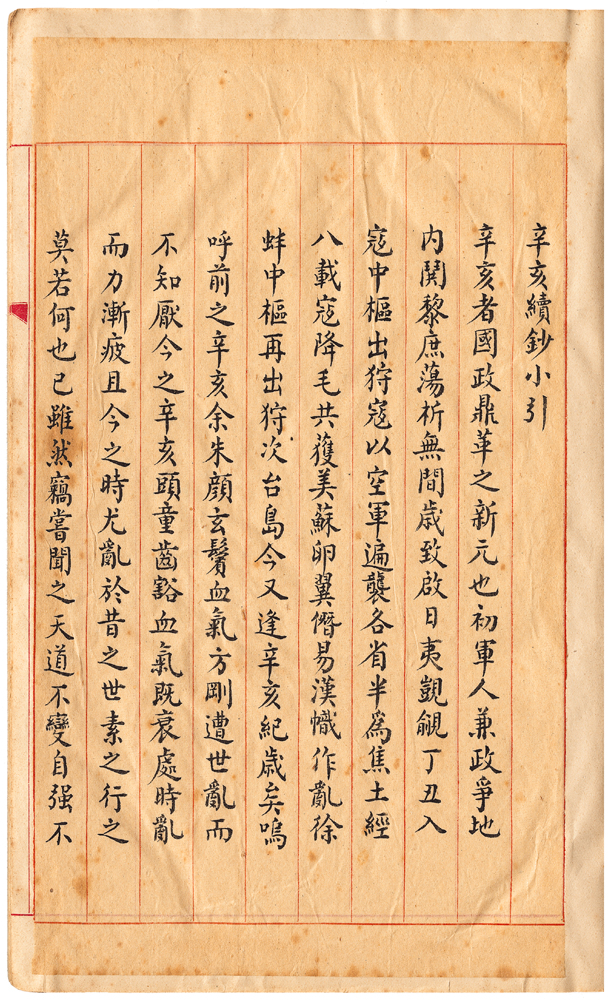 辛亥續鈔小引
辛亥者國政鼎革之新元也初軍人兼政爭地
内鬨黎庶蕩析無間歲致啟日夷覬覦丁丑入
寇中樞出狩寇以空軍遍襲各省半為焦土經
八載寇降毛共獲美蘇卵翼僭易漢幟作亂徐
蚌中樞再出狩次台島今又逢辛亥紀歲矣嗚
呼前之辛亥余朱顏玄鬢血氣方剛遭世亂而
不知厭今之辛亥頭童齒豁血氣既衰處時亂
而力漸疲且今之時尤亂於昔之世素之行之
莫若何也已雖然竊嘗聞之天道不變自强不